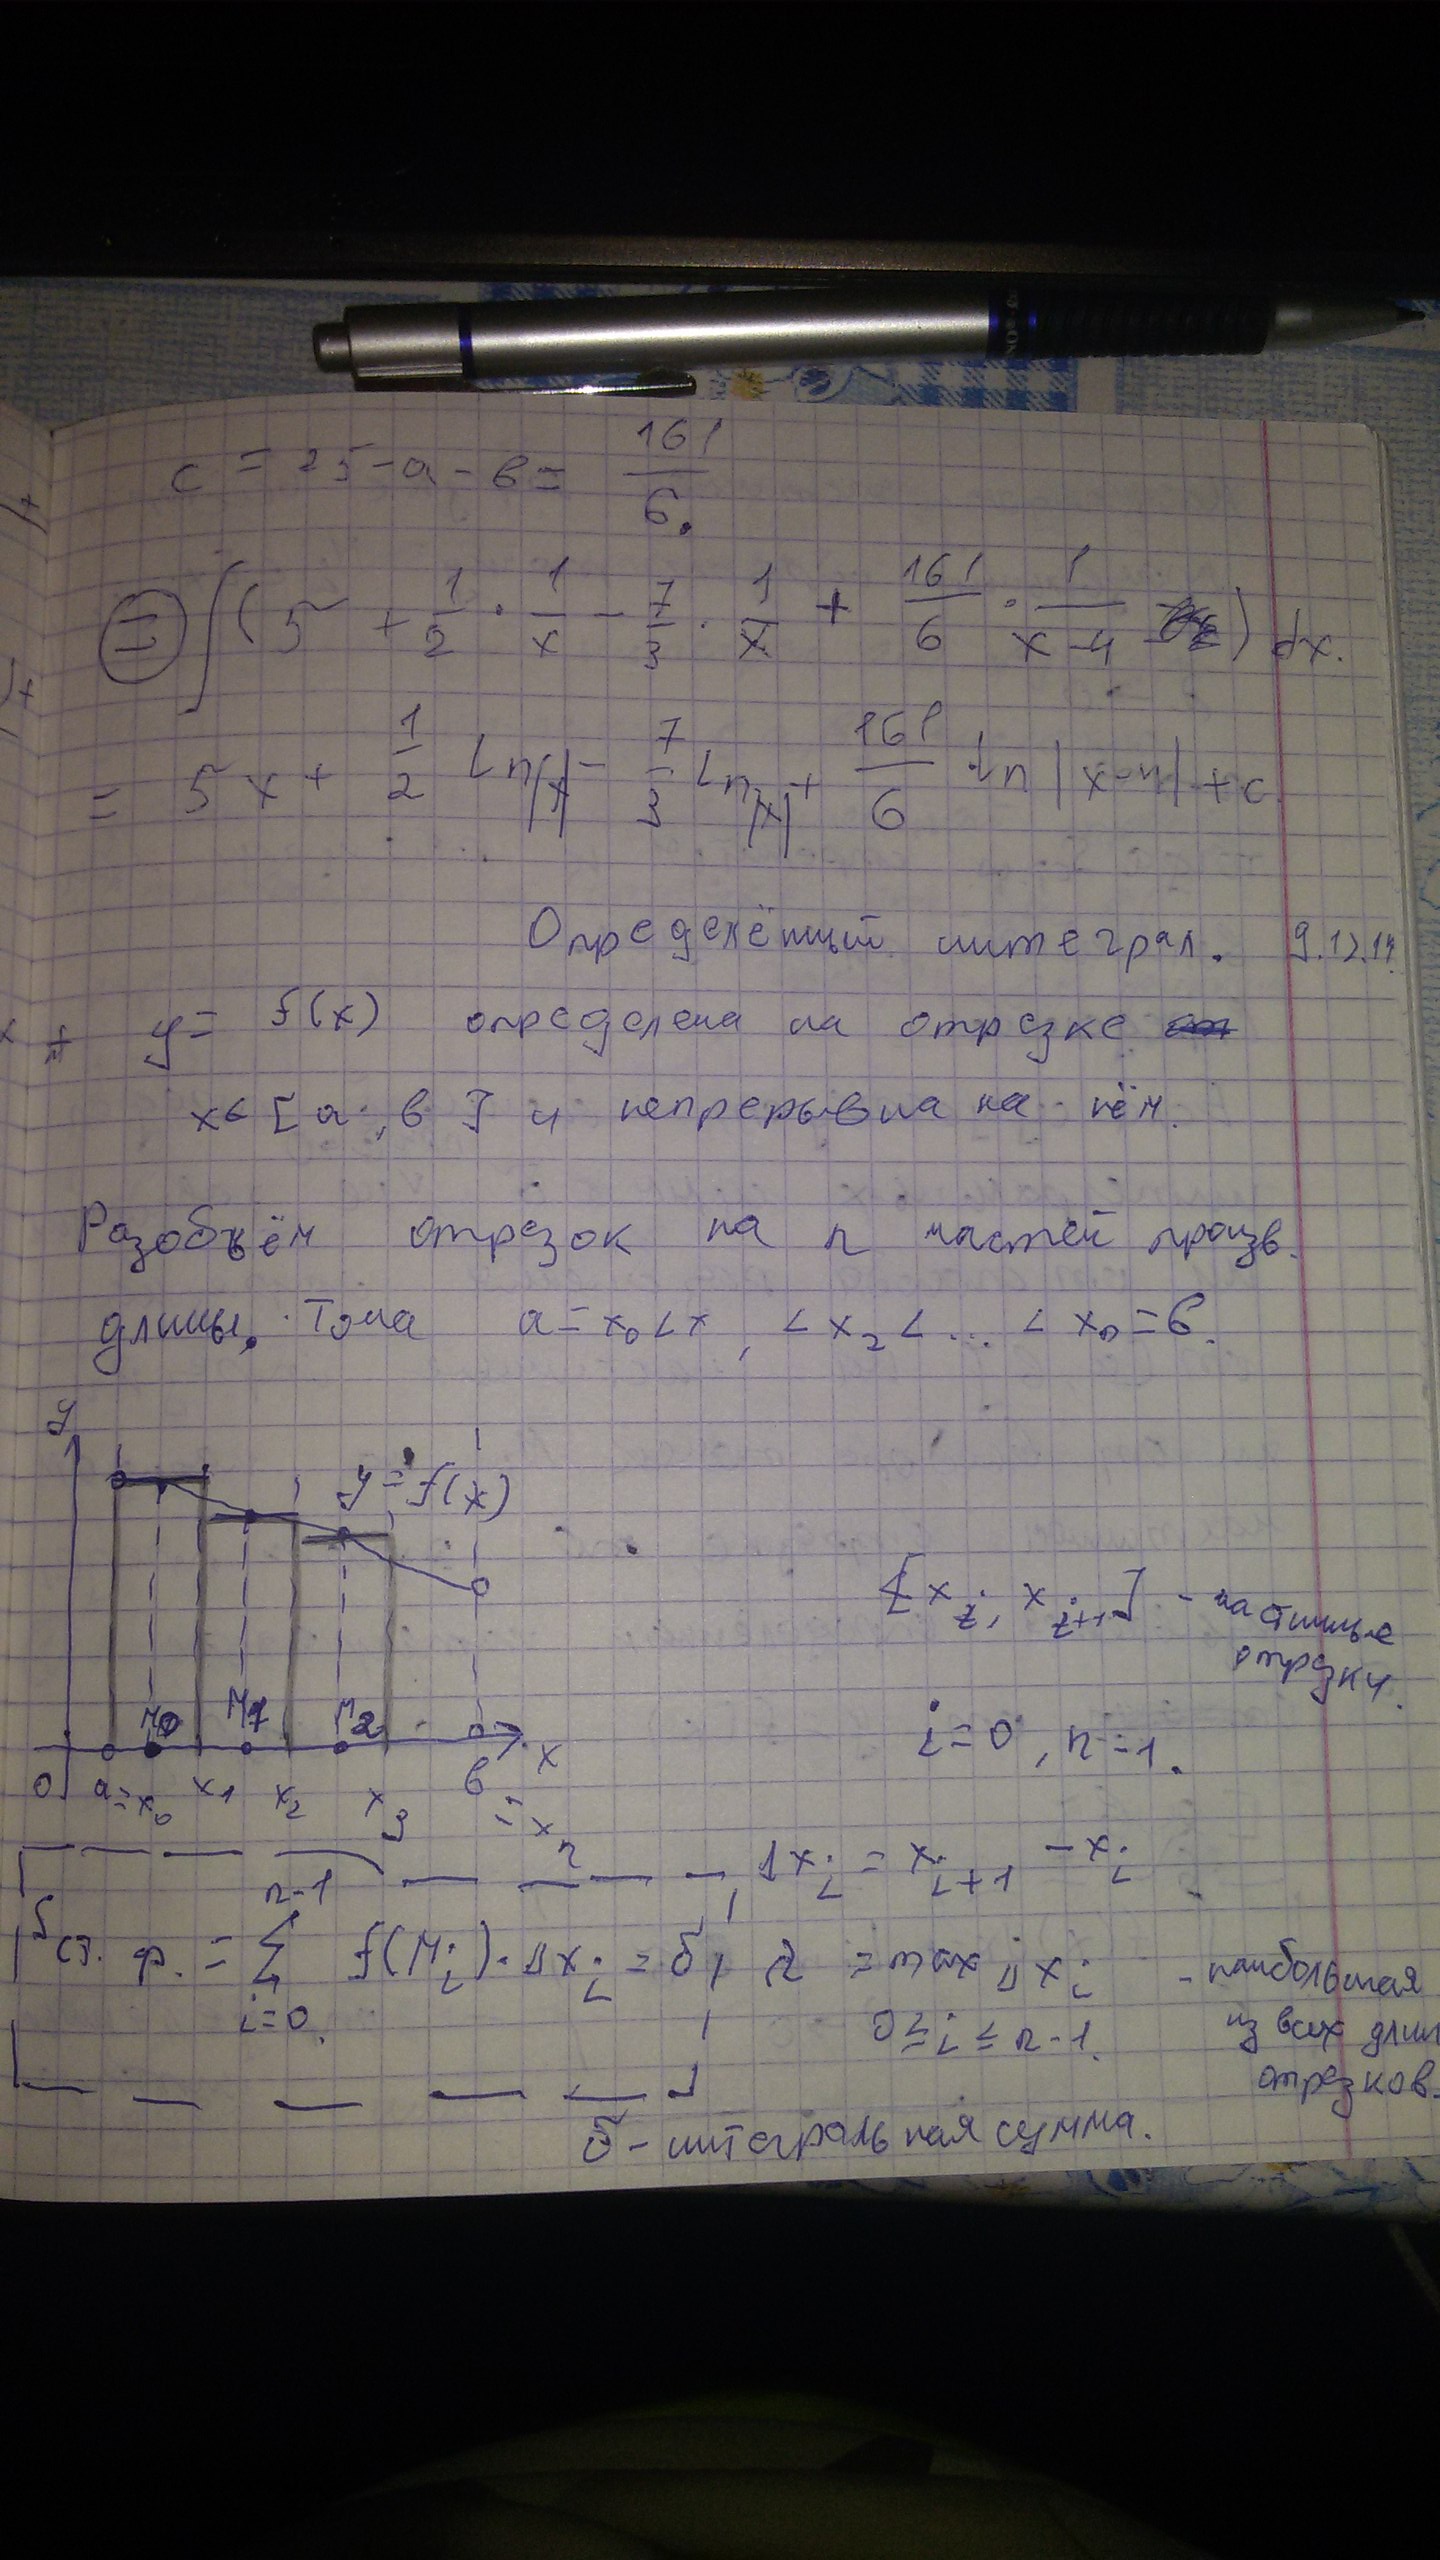 c = 25 - a - в = 161/6.
= ∫(5 + 1/2 · 1/x - 7/3 · 1/x + 161/6 · 1/x-4) dx.
= 5x + 1/2 ln|x| - 7/3 ln|x| + 161/6 · ln|x-4| + c.
Определённый интеграл. 9.12.14.
y = f(x) определена на отрезке
x∈[a;в] и непрерывна на нём.
Разобъём отрезок на n частей произв.
длины. Тогда a = x₀ < x₁ < x₂ < ... < xₙ = в.
y
y = f(x)
[xᵢ, xᵢ₊₁] - частичные
отрезки.
i = 0, n-1.
M₀ M₁ M₂
0 a = x₀ x₁ x₂ x₃ в = xₙ x
Δxᵢ = xᵢ₊₁ - xᵢ
Sст. ф. = ∑ᵢ₌₀ⁿ⁻¹ f(Mᵢ)·Δxᵢ = σ
λ = max Δxᵢ - наибольшая
0 ≤ i ≤ n-1. из всех длин
отрезков.
σ - интегральная сумма.